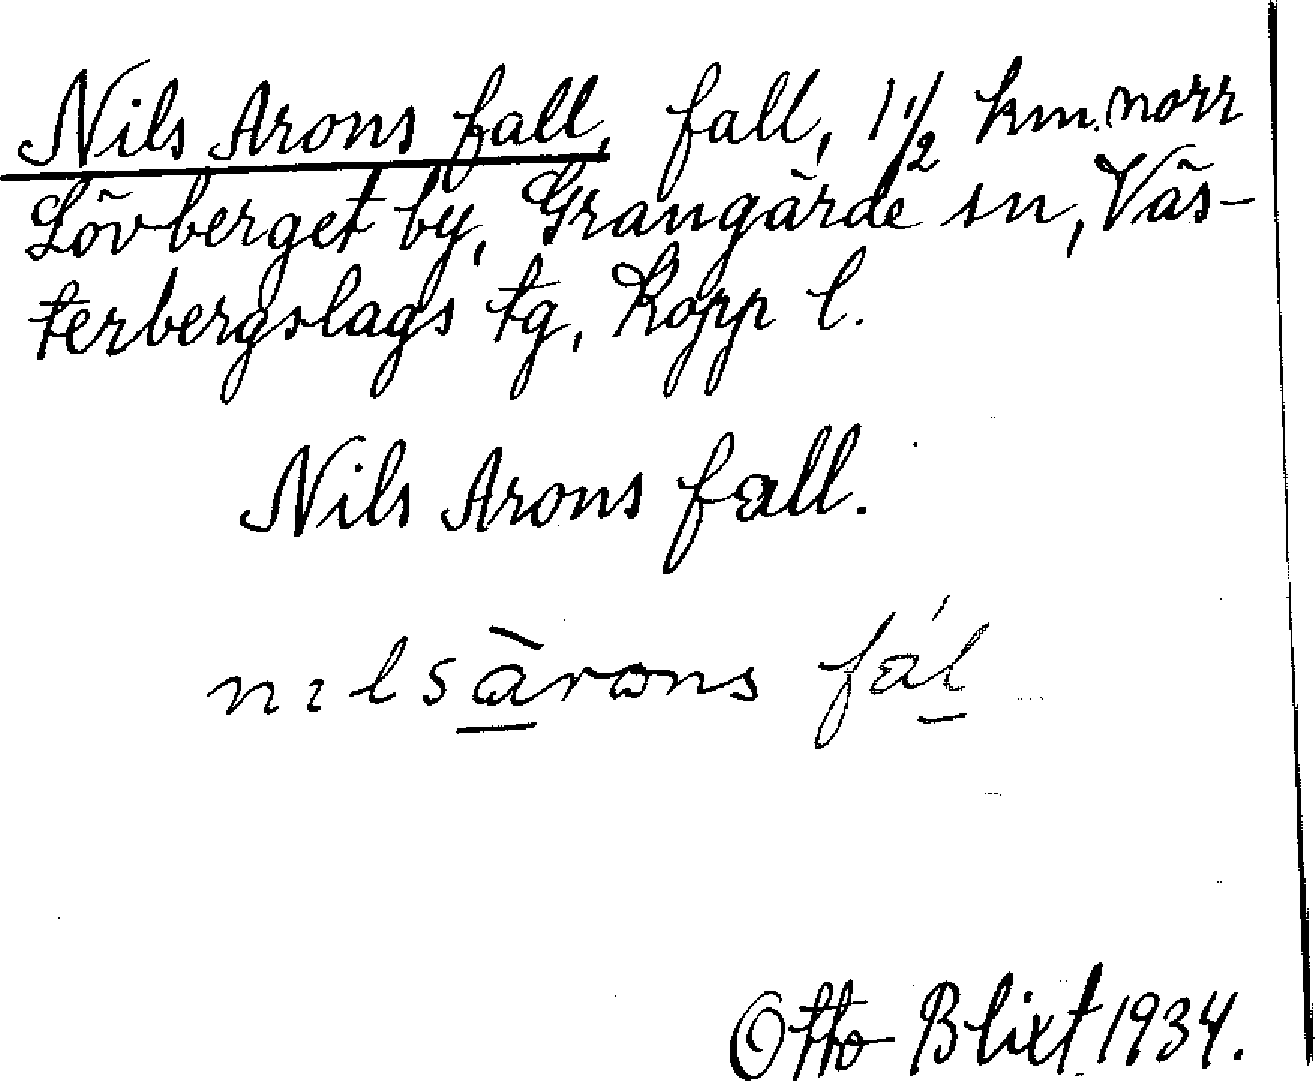 Nils Arons fall, fall, 1 1/2 km. norr
Lövberget by, Grangärde sn, Väs-
terbergslags tg, Kopp l.
Nils Arons fall.
nɪlsàrɷns fál
Otto Blixt 1934.